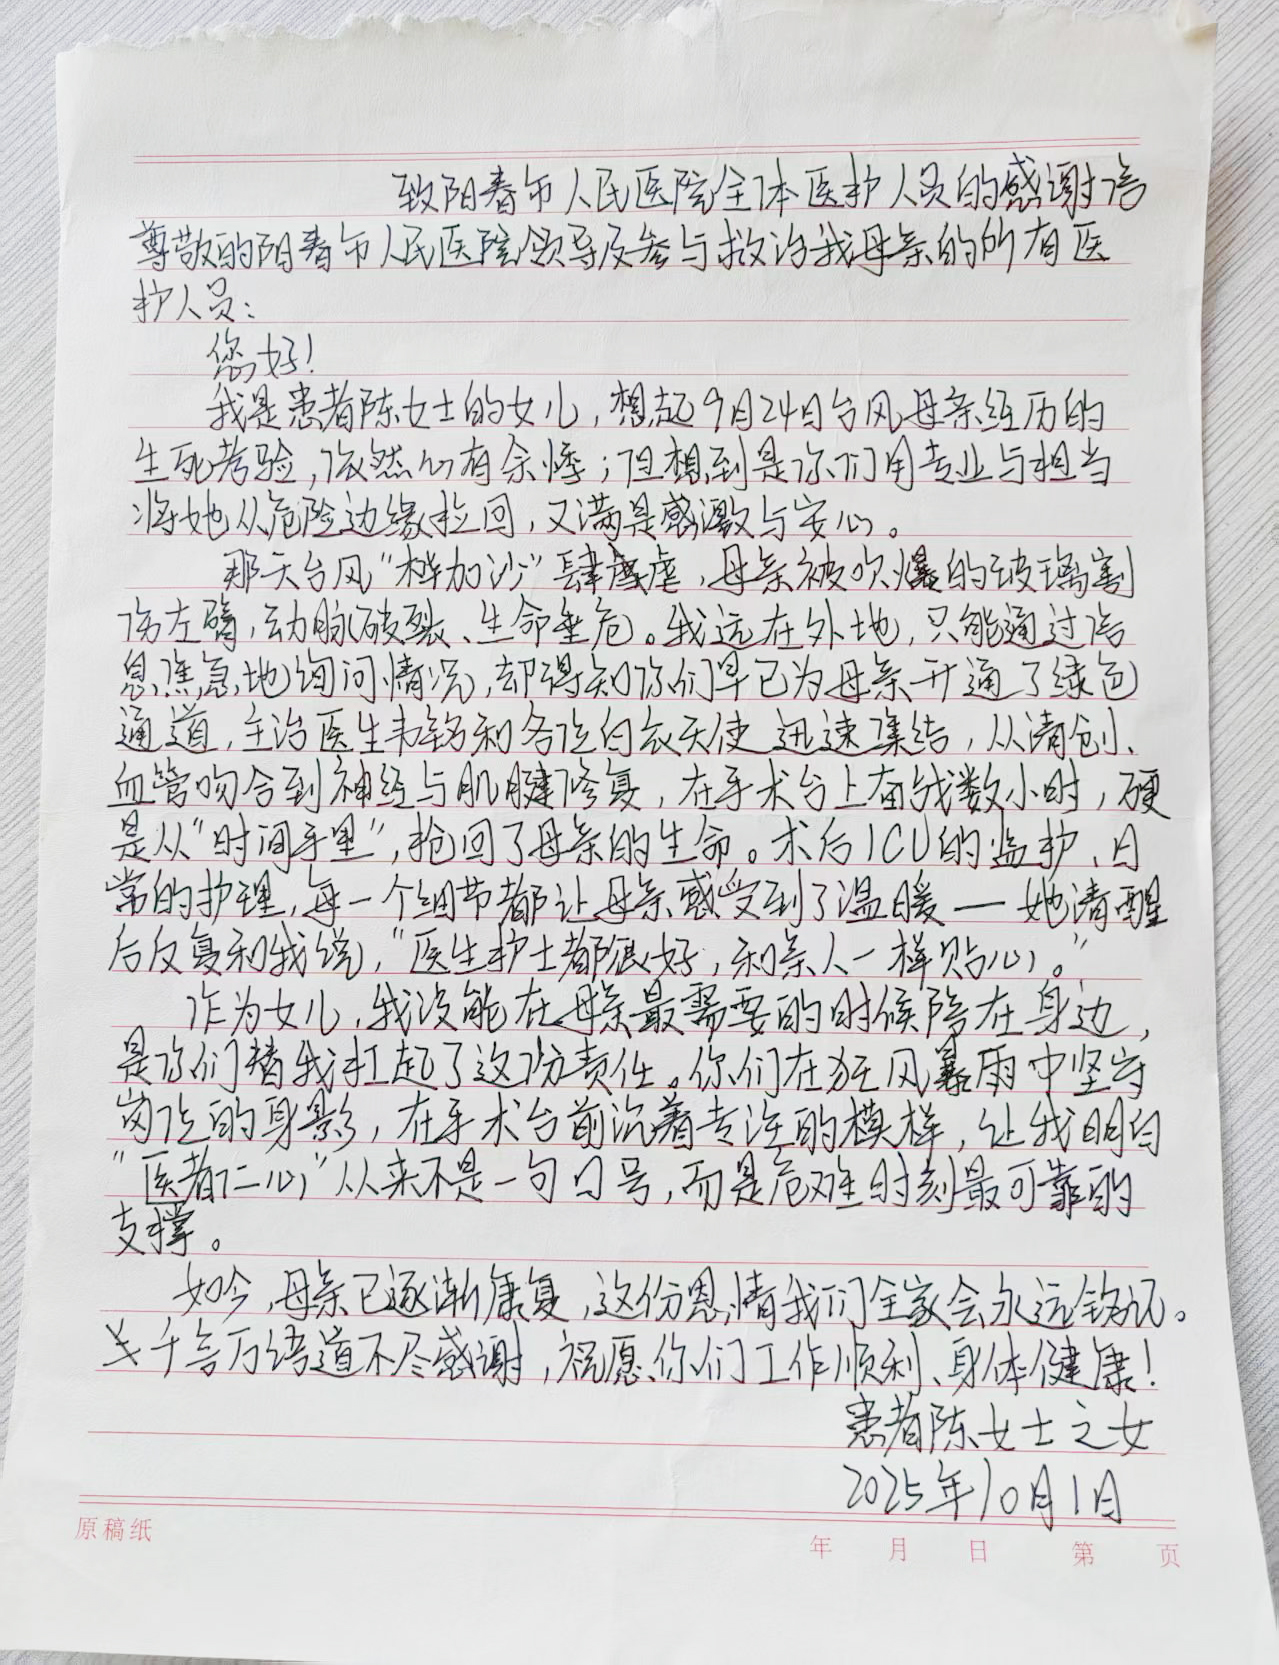 致阳春市人民医院全体医护人员的感谢信
尊敬的阳春市人民医院领导及参与救治我母亲的所有医
护人员：
您好！
我是患者陈女士的女儿，想起9月24日台风母亲经历的
生死考验，依然心有余悸；但想到是你们用专业与担当
将她从危险边缘拉回，又满是感激与安心。
那天台风“桦加沙”肆虐，母亲被吹爆的玻璃割
伤左臂，动脉破裂、生命垂危。我远在外地，只能通过信
息焦急地询问情况，却得知你们早已为母亲开通了绿色
通道，主治医生韦铭和各位白衣天使迅速集结，从清创、
血管吻合到神经与肌腱修复，在手术台上奋战数小时，硬
是从“时间手里”，抢回了母亲的生命。术后ICU的监护、日
常的护理，每一个细节都让母亲感受到了温暖—她清醒
后反复和我说，“医生护士都很好，和亲人一样贴心。”
作为女儿，我没能在母亲最需要的时候陪在身边，
是你们替我扛起了这份责任。你们在狂风暴雨中坚守
岗位的身影，在手术台前沉着专注的模样，让我明白
“医者仁心”从来不是一句口号，而是危难时刻最可靠的
支撑。
如今，母亲已逐渐康复，这份恩情我们全家会永远铭记。
千言万语道不尽感谢，祝愿你们工作顺利、身体健康！
患者陈女士之女
2025年10月1日
原稿纸
年 月 日 第 页